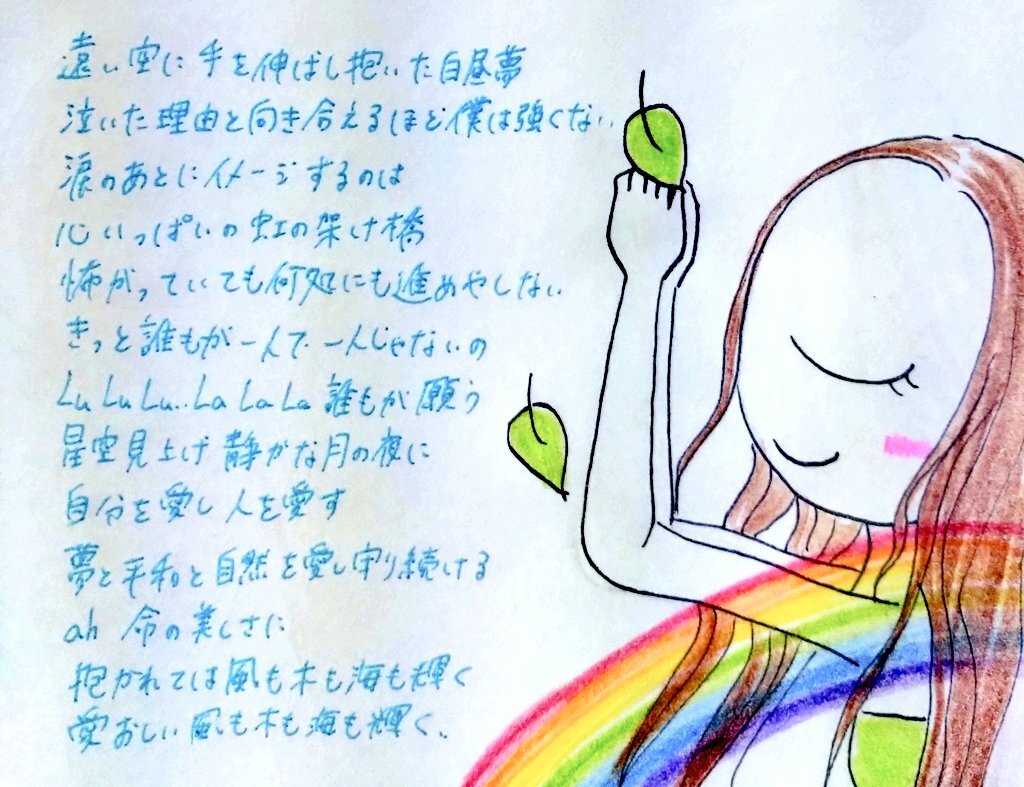 遠い空に手を伸ばし抱いた白昼夢
泣いた理由と向き合えるほど僕は強くない
涙のあとにイメージするのは
心いっぱいの虹の架け橋
怖がっていても何処にも進めやしない
きっと誰もが一人で一人じゃないの
Lu Lu Lu..La La La 誰もが願う
星空見上げ静かな月の夜に
自分を愛し人を愛す
夢と平和と自然を愛し守り続ける
ah 命の美しさに
抱かれては風も木も海も輝く
愛おしい風も木も海も輝く、